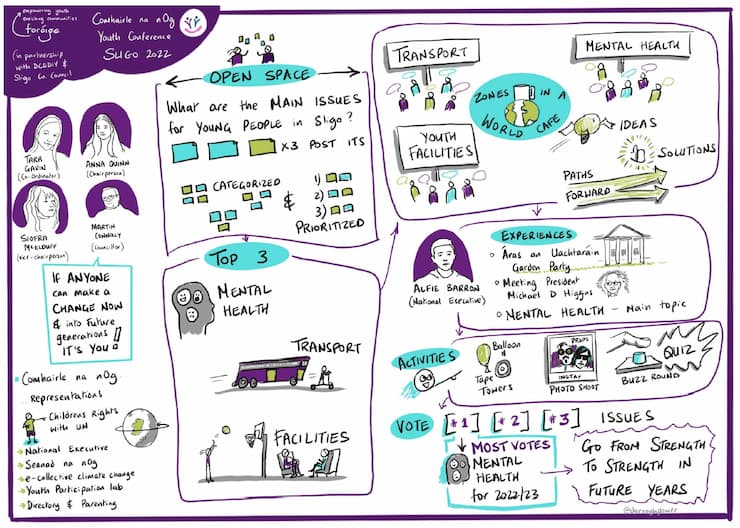 empowering youth
enriching communities
foróige
Comhairle na nÓg
Youth Conference
SLIGO 2022
(in partnership
with DCEDIY &
Sligo Co. Council
TARA
GAVIN
(Co-Ordinator)
ANNA QUINN
(Chairperson)
SIOFRA
(Vice-chairperson)
MARTIN
CONNOLLY
(Councillor)
IF ANYONE
can make a
CHANGE NOW
& into Future
generations
IT'S YOU!
Comhairle na nÓg
representations
Childrens Rights
with UN
National Executive
Seanad na nÓg
e-collective climate change
Youth Participation lab
Directory & Parenting
OPEN SPACE
What are the MAIN ISSUES
for YOUNG PEOPLE in Sligo?
x3 POST ITS
CATEGORIZED
&
1)
2)
3)
PRIORITIZED
TOP 3
MENTAL
HEALTH
TRANSPORT
FACILITIES
TRANSPORT
MENTAL HEALTH
ZONES IN A
WORLD CAFE
YOUTH
FACILITIES
IDEAS
SOLUTIONS
PATHS
FORWARD
ALFIE BARRON
(National Executive)
EXPERIENCES
Áras an Uachtaráin
Garden Party
Meeting President
Michael D Higgins
MENTAL HEALTH - Main topic
ACTIVITIES
Balloon
&
Tape
Towers
PROPS
INSTAX
PHOTO SHOOT
QUIZ
BUZZ ROUND
VOTE [#1] [#2] [#3] ISSUES
MOST VOTES
MENTAL
HEALTH
for 2022/23
GO FROM STRENGTH
TO STRENGTH IN
FUTURE YEARS